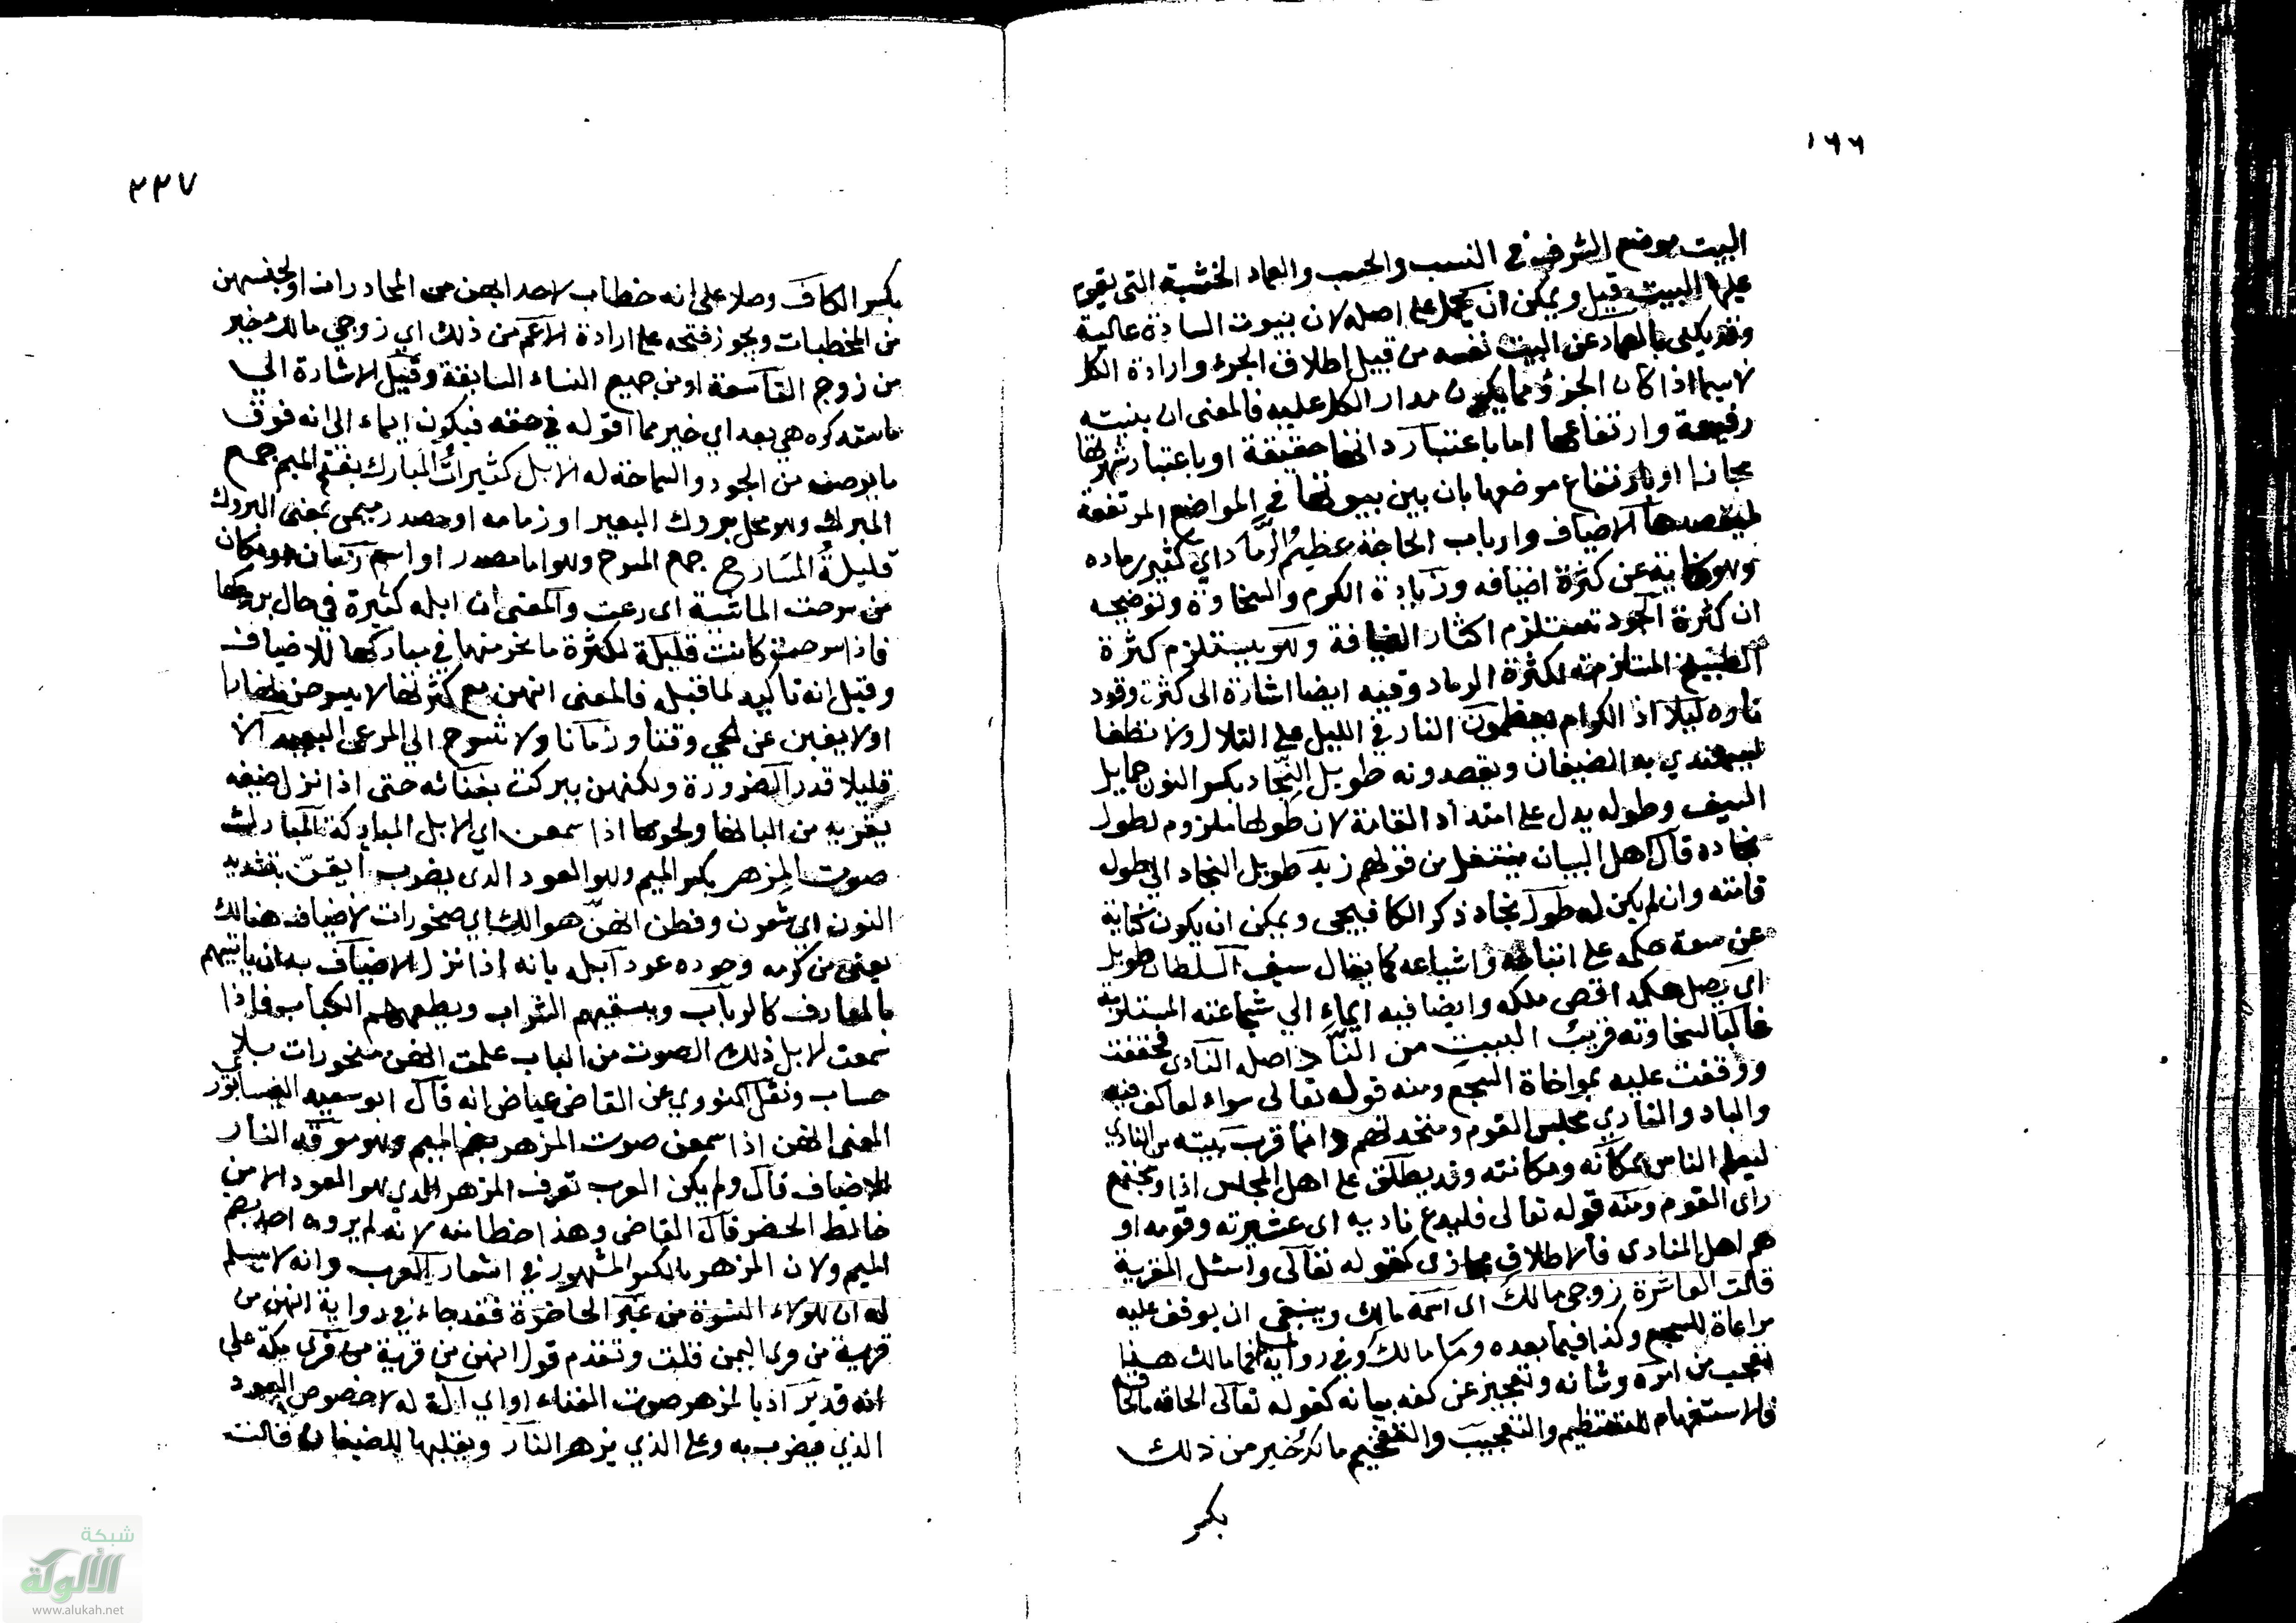 ١٦٦
البيت موضع الشرف في النسب والحسب والعماد الخشبة التي يقوم
عليها البيت قيل ويمكن ان يحمل على اصله لان بيوت السادة عالية
وقد يكنى بالعماد عن البيت نفسه من قبيل اطلاق الجزء وارادة الكل
لا سيما اذا كان الجزؤ مما يكون مدار الكل عليه فالمعنى ان بنيته
رفيعة وارتفاعها اما باعتبار ذاتها حقيقة او باعتبار شهرتها
مجازا او بارتفاع موضعها بان بين بيوتها في المواضع المرتفعة
ليقصدها الاضياف وارباب الحاجة عظيمُ الرَّمَاد اي كثير رماده
وهو كناية عن كثرة اضيافه وزيادة الكرم والسخاوة وتوضيحه
ان كثرة الجود تستلزم اكثار الضيافة وهو يستلزم كثرة
الطبيخ المستلزمة لكثرة الرماد وفيه ايضا اشارة الى كثرة وقود
ناره ليلا اذ الكرام يعظمون النار في الليل على التلال ولا تطفا
ليهتدي به الضيفان ويقصدونه طويل النِّجاد بكسر النون حمايل
السيف وطوله يدل على امتداد القامة لان طولها ملزوم لطول
نجاده قال اهل البيان ينتقل من قولهم زيد طويل النجاد الي طول
قامته وان لم يكن له طول نجاد ذكر الكافيجي ويمكن ان يكون كناية
عن سعة حكمه على اتباعه واشياعه كما يقال سيف السلطان طويل
اي يصل حكمه اقصى ملكه وايضا فيه ايماء الي شجاعته المستلزمة
غالبا لسخاوته قريبُ البيت من النَّاد اصله النادي فخففت
ووقفت عليه بمواخاة السجع ومنه قوله تعالى سواء العاكف فيه
والباد والنادي مجلس القوم ومتحدثهم وانما قرب بيته من النادي
ليعلم الناس بمكانه ومكانته وقد يطلق على اهل المجلس اذا ومجتمع
راى القوم ومنه قوله تعالى فليدع ناديه اى عشيرته وقومه او
هم اهل النادى فالاطلاق مجازى كقوله تعالى واسئل القرية
قالت العاشرة زوجى مالك اى اسمه مالك وينبغى ان يوقف عليه
مراعاة للسجع وكذا فيما بعده وما مالك وفي رواية فما مالك هنا
تعجب من امره وشانه وتعجيز عن كنه بيانه كقوله تعالى الحاقة ما الحاقه
فالاستفهام للتعظيم والتعجيب والتفخيم مالكٌ خير من ذلك
بكسر
٢٢٧
بكسر الكاف وصلا على انه خطاب لاحدايهن من المحادرات او لجنسهن
من المخطبات ويجوز فتحه على ارادة الاعم من ذلك اي زوجي مالك خير
من زوج التاسعة او من جميع النساء السابقة وقيل الاشارة الي
ما ستذكره هي بعد اي خير مما اقوله في حقه فيكون ايماء الى انه فوق
ما يوصف من الجود والسماحة له الابل كثيراتُ المبارك بفتح الميم جمع
المبرك وهو محل بروك البعير او زمامه او مصدر ميمى بمعنى البروك
قليلةُ المَسَارح جمع المسرح وهو اما مصدر او اسم زمان او مكان
من سرحت الماشية اى رعت والمعنى ان ابله كثيرة في حال بروكها
فاذا سرحت كانت قليلة لكثرة ما نحر منها في مباركها للاضياف
وقيل انه تاكيد لما قبله فالمعنى انهن مع كثرتها لا يسرحن نهارا
اولا يغبن عن الحي وقتا وزمانا ولا تسرح الي المرعى البعيد الا
قليلا قدر الضرورة ولكنهن يبركت بفنائه حتى اذا نزل ضيفه
يقريه من البانها ولحومها اذا سمعن اي الابل المباركة المبارك
صوت المِزهر بكسر الميم وهو العود الذى يضرب أيقنّ بتشديد
النون اى شعرن وفطن انهنّ هوالك اي منحورات لاضيافه هنالك
يعنى من كرمه وجوده عود ابله بانه اذا نزل الاضياف به ان ياتيهم
بالمعازف كالرباب ويسقيهم الشراب ويطعمهم الكباب فاذا
سمعت الابل ذلك الصوت من الباب علمت انهن منحورات بلا
حساب ونقل النووي عن القاضى عياض انه قال ابو سعيد النيسابوري
المعنى انهن اذا سمعن صوت المزهر بضم الميم وهو موقد النار
للاضياف قال ولم يكن العرب تعرف المزهر الذي هو العود الا من
خالط الحضر قال القاضى وهذا خطا منه لانه لم يروه احد بضم
الميم ولان المزهر بالكسر المشهور في اشعار العرب وانه لا يسلم
له ان هولاء النسوة من غير الحاضرة فقد جاء في رواية انهن من
قرية من قرى اليمن قلت وتقدم قول انهن من قرية من قرى مكة على
انه قد يراد بالمزهر صوت الغناء او اي الة له لا خصوص العود
الذي يضرب به وعلى الذي يزهر النار ويقلبها للضيفان فقالت
شبكة
الألوكة
www.alukah.net